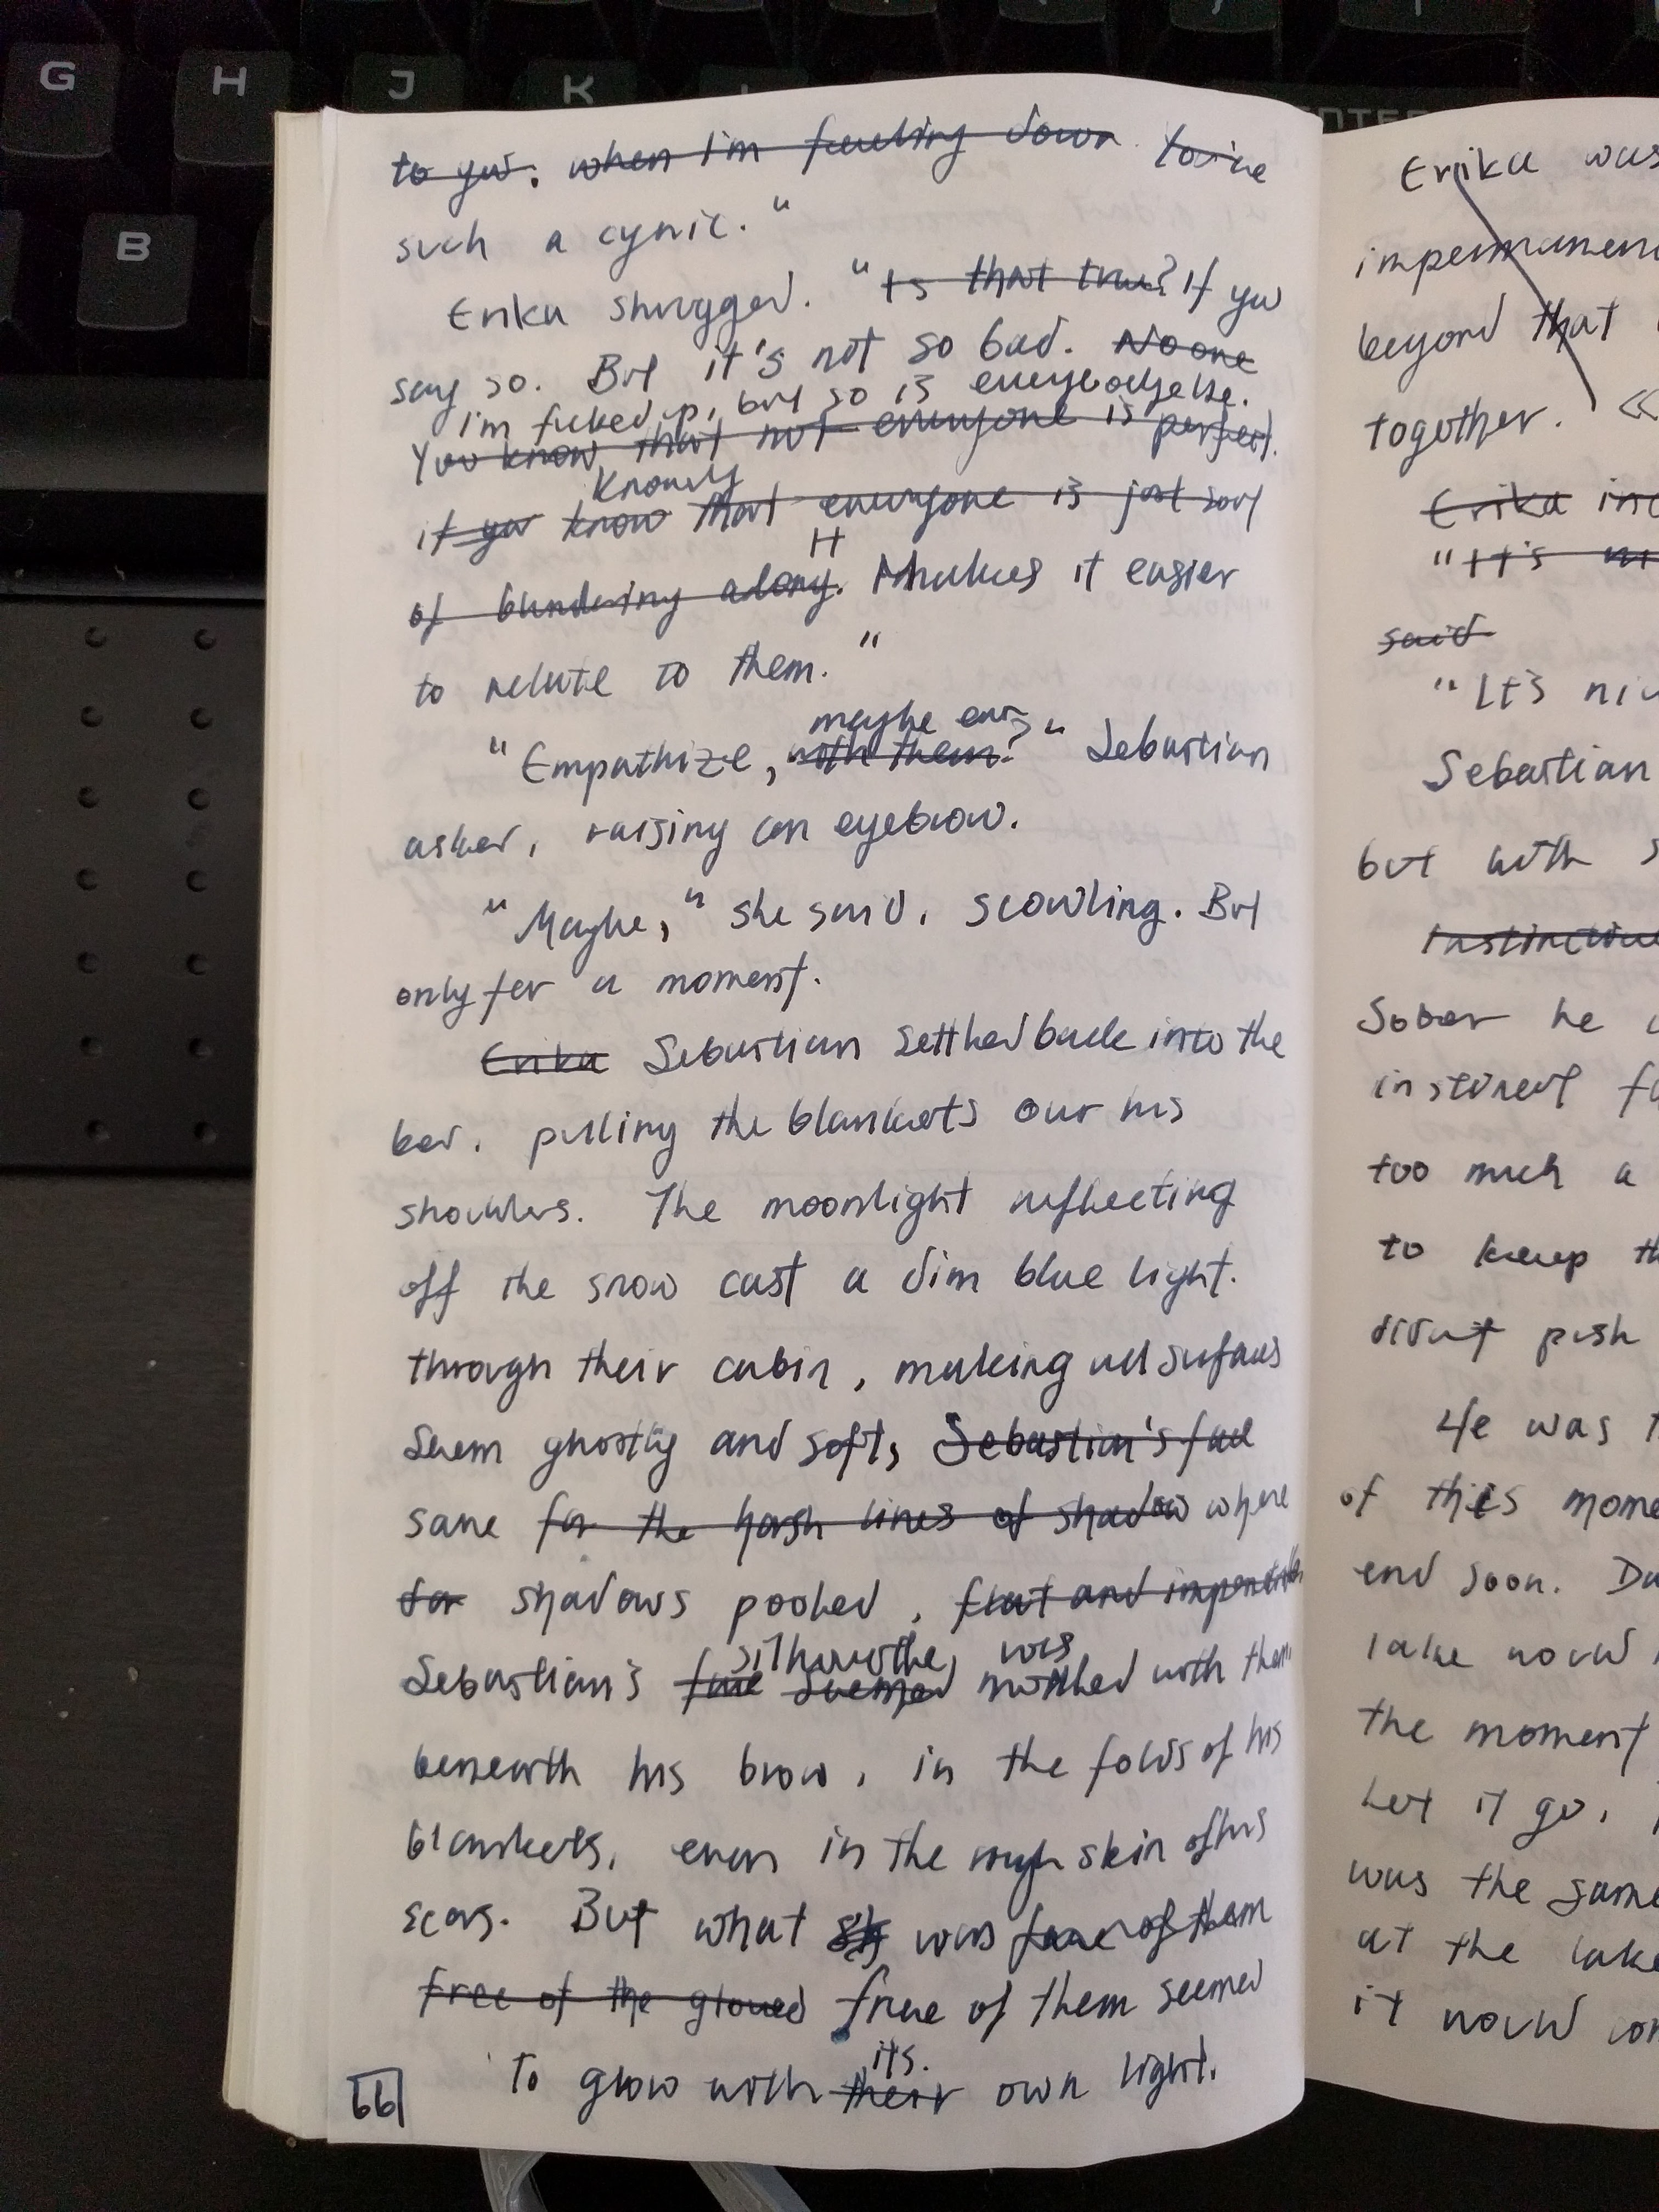 G H J K
ENTER
B
to you. when I'm feeling down. You're
such a cynic."
Erika shrugged. "Is that true? If you
say so. But it's not so bad. No one
I'm fucked up, but so is everybody else.
You know that not everyone is perfect.
Knowing
if you know that everyone is just sort
It
of blundering along. Makes it easier
to relate to them."
maybe even?"
"Empathize, with them?" Sebastian
asked, raising an eyebrow.
"Maybe," she said, scowling. But
only for a moment.
Erika Sebastian settled back into the
bed, pulling the blankets over his
shoulders. The moonlight reflecting
off the snow cast a dim blue light.
through their cabin, making all surfaces
seem ghostly and soft, Sebastian's face
save for the harsh lines of shadow where
for shadows pooled, flat and impenetrable
silhouette was
Sebastian's face seemed mottled with them
beneath his brow, in the folds of his
blankets, even in the rough skin of his
scars. But what was free of them
free of the glowed free of them seemed
its
to glow with their own light.
66
Erika was
impermanen
beyond that
together. <<
Erika inc
"It's
said
"It's ni
Sebastian
but with s
Instinctive
Sober he
instinct fo
too much a
to keep th
didn't push
He was t
of this mome
end soon. Du
lake would
the moment
Let it go,
was the same
at the lake
it would con